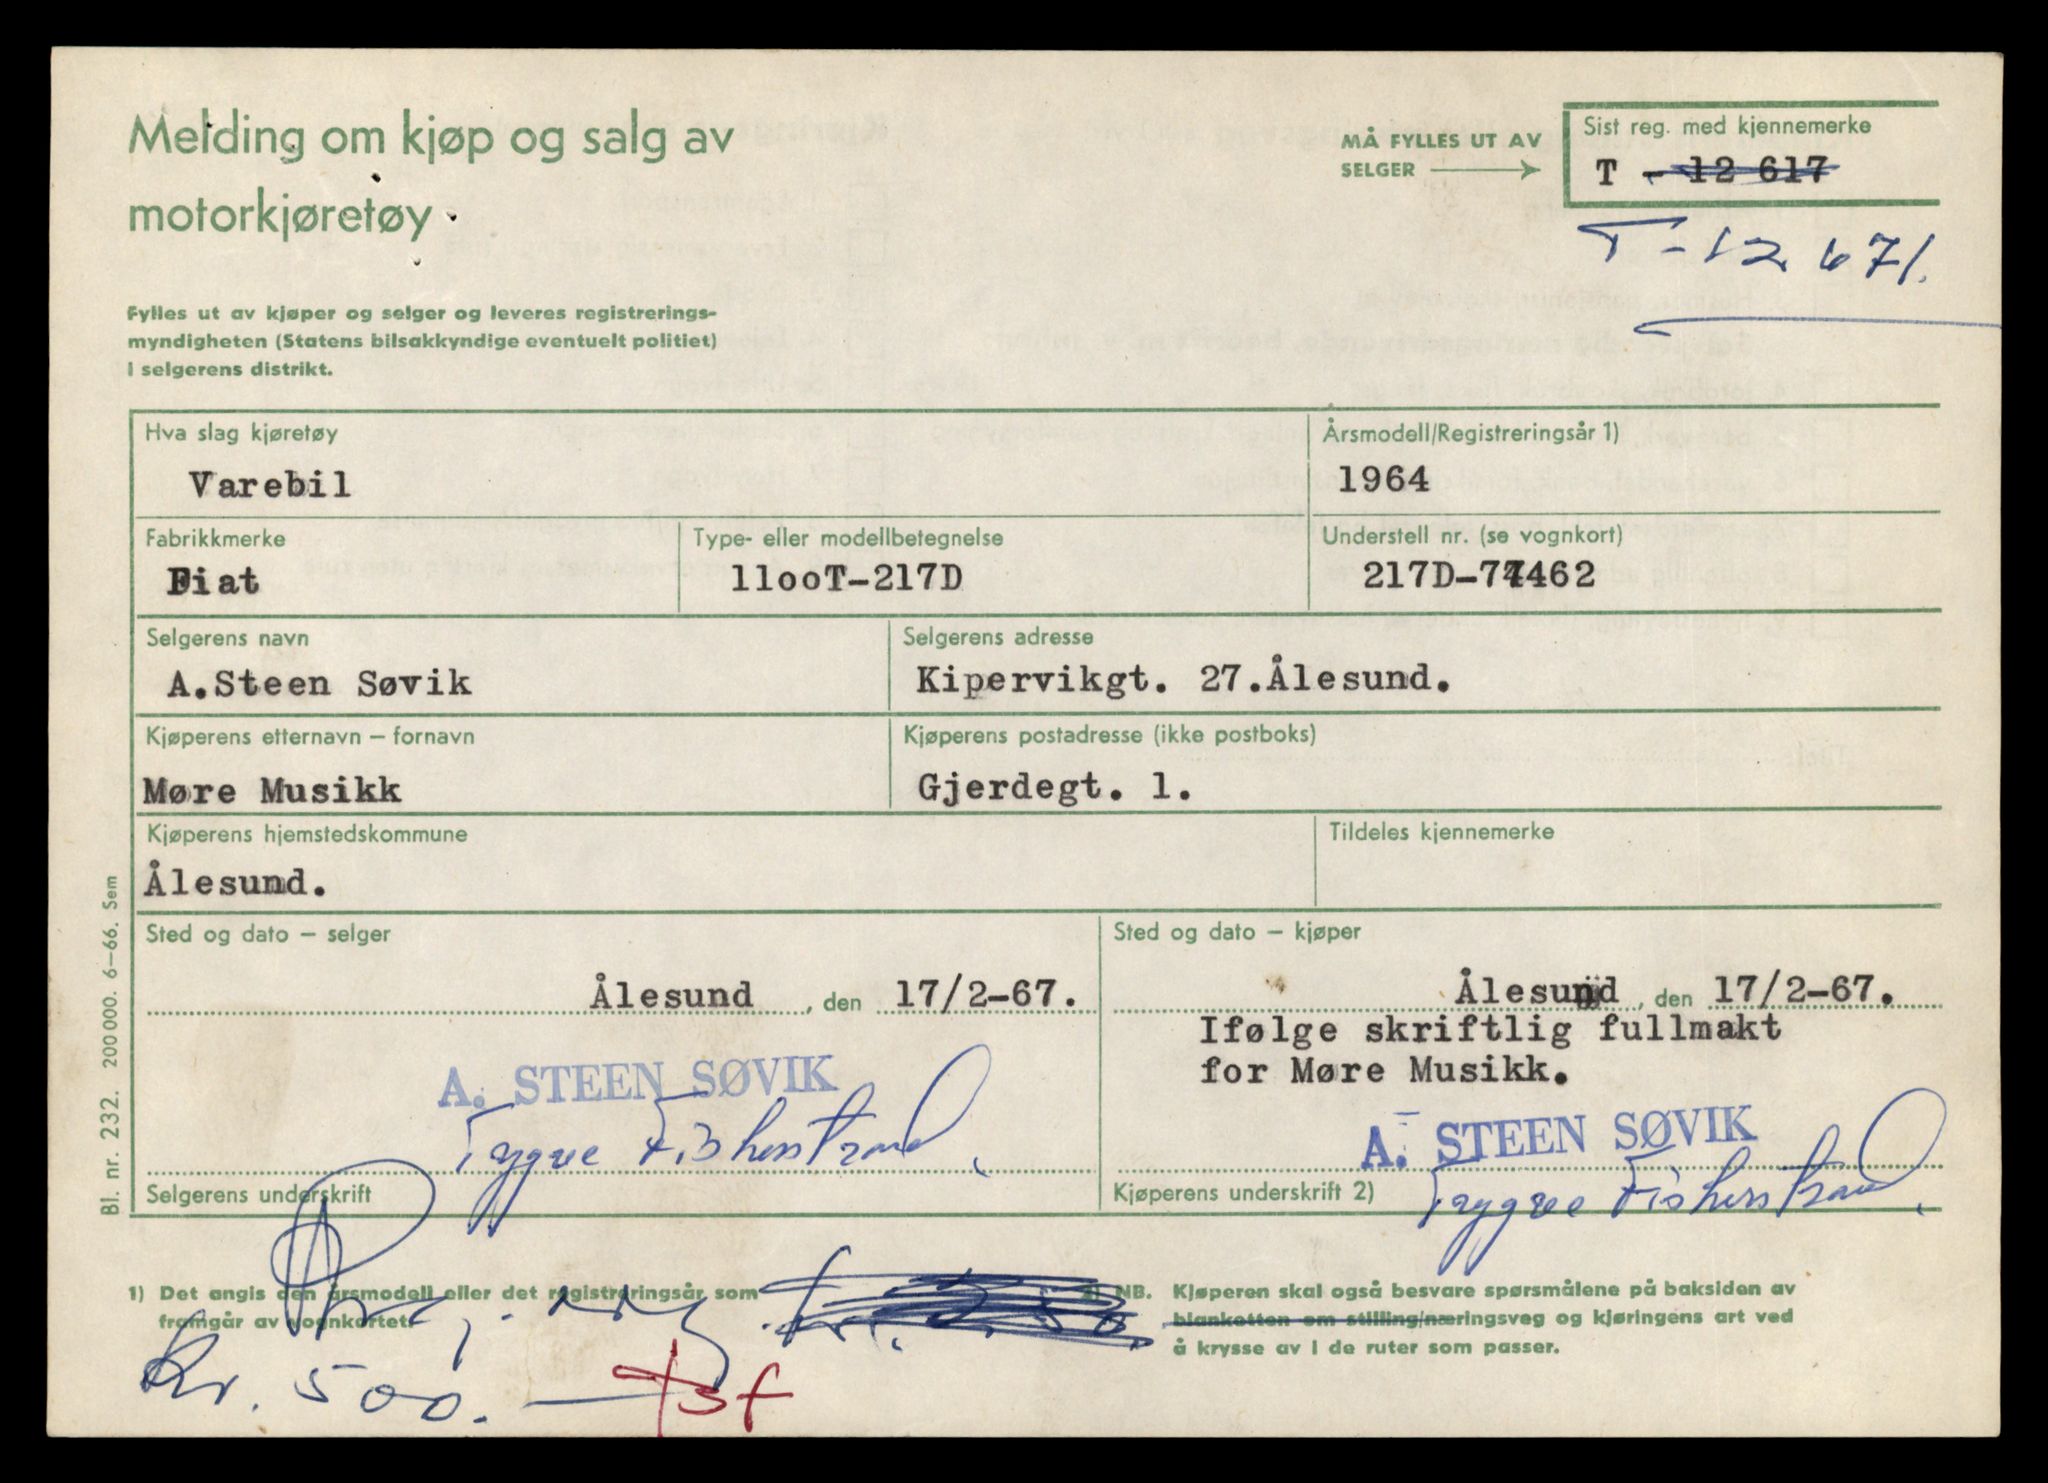 Melding om kjøp og salg av
motorkjøretøy
MÅ FYLLES UT AV
SELGER
Sist reg. med kjennemerke
T - 12 617
T - 12 671.
Fylles ut av kjøper og selger og leveres registrerings-
myndigheten (Statens bilsakkyndige eventuelt politiet)
i selgerens distrikt.
Hva slag kjøretøy
Varebil
Årsmodell/Registreringsår 1)
1964
Fabrikkmerke
Fiat
Type- eller modellbetegnelse
1100T-217D
Understell nr. (se vognkort)
217D-
Selgerens navn
A.Steen Søvik
Selgerens adresse
Kipervikgt. 27.Ålesund.
Kjøperens etternavn – fornavn
Møre Musikk
Kjøperens postadresse (ikke postboks)
Gjerdegt. 1.
Kjøperens hjemstedskommune
Ålesund.
Tildeles kjennemerke
Sted og dato – selger
Ålesund, den 17/2-67.
Sted og dato – kjøper
Ålesund, den 17/2-67.
Ifølge skriftlig fullmakt
for Møre Musikk.
A. STEEN SØVIK
Trygve Fiskerstrand.
Selgerens underskrift
A. STEEN SØVIK
Trygve Fiskerstrand.
Kjøperens underskrift 2)
Bl. nr. 232. 200 000. 6–66. Sem
1) Det angis den årsmodell eller det registreringsår som
framgår av vognkortet.
2) NB. Kjøperen skal også besvare spørsmålene på baksiden av
blanketten om stilling/næringsveg og kjøringens art ved
å krysse av i de ruter som passer.
Kr. 500.-